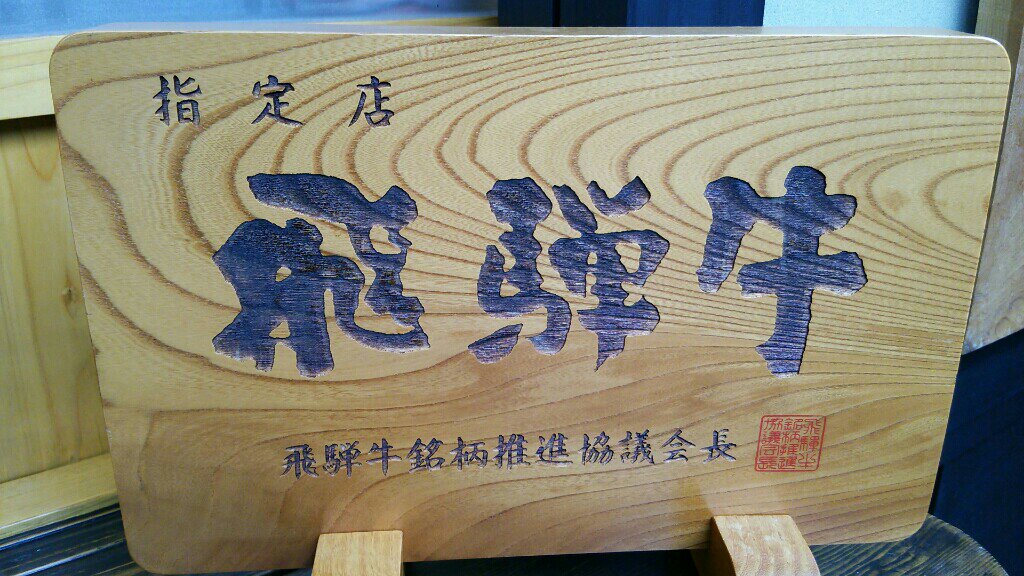 指定店
飛騨牛
飛騨牛銘柄推進協議会長
飛騨牛
銘柄推進
協議会長